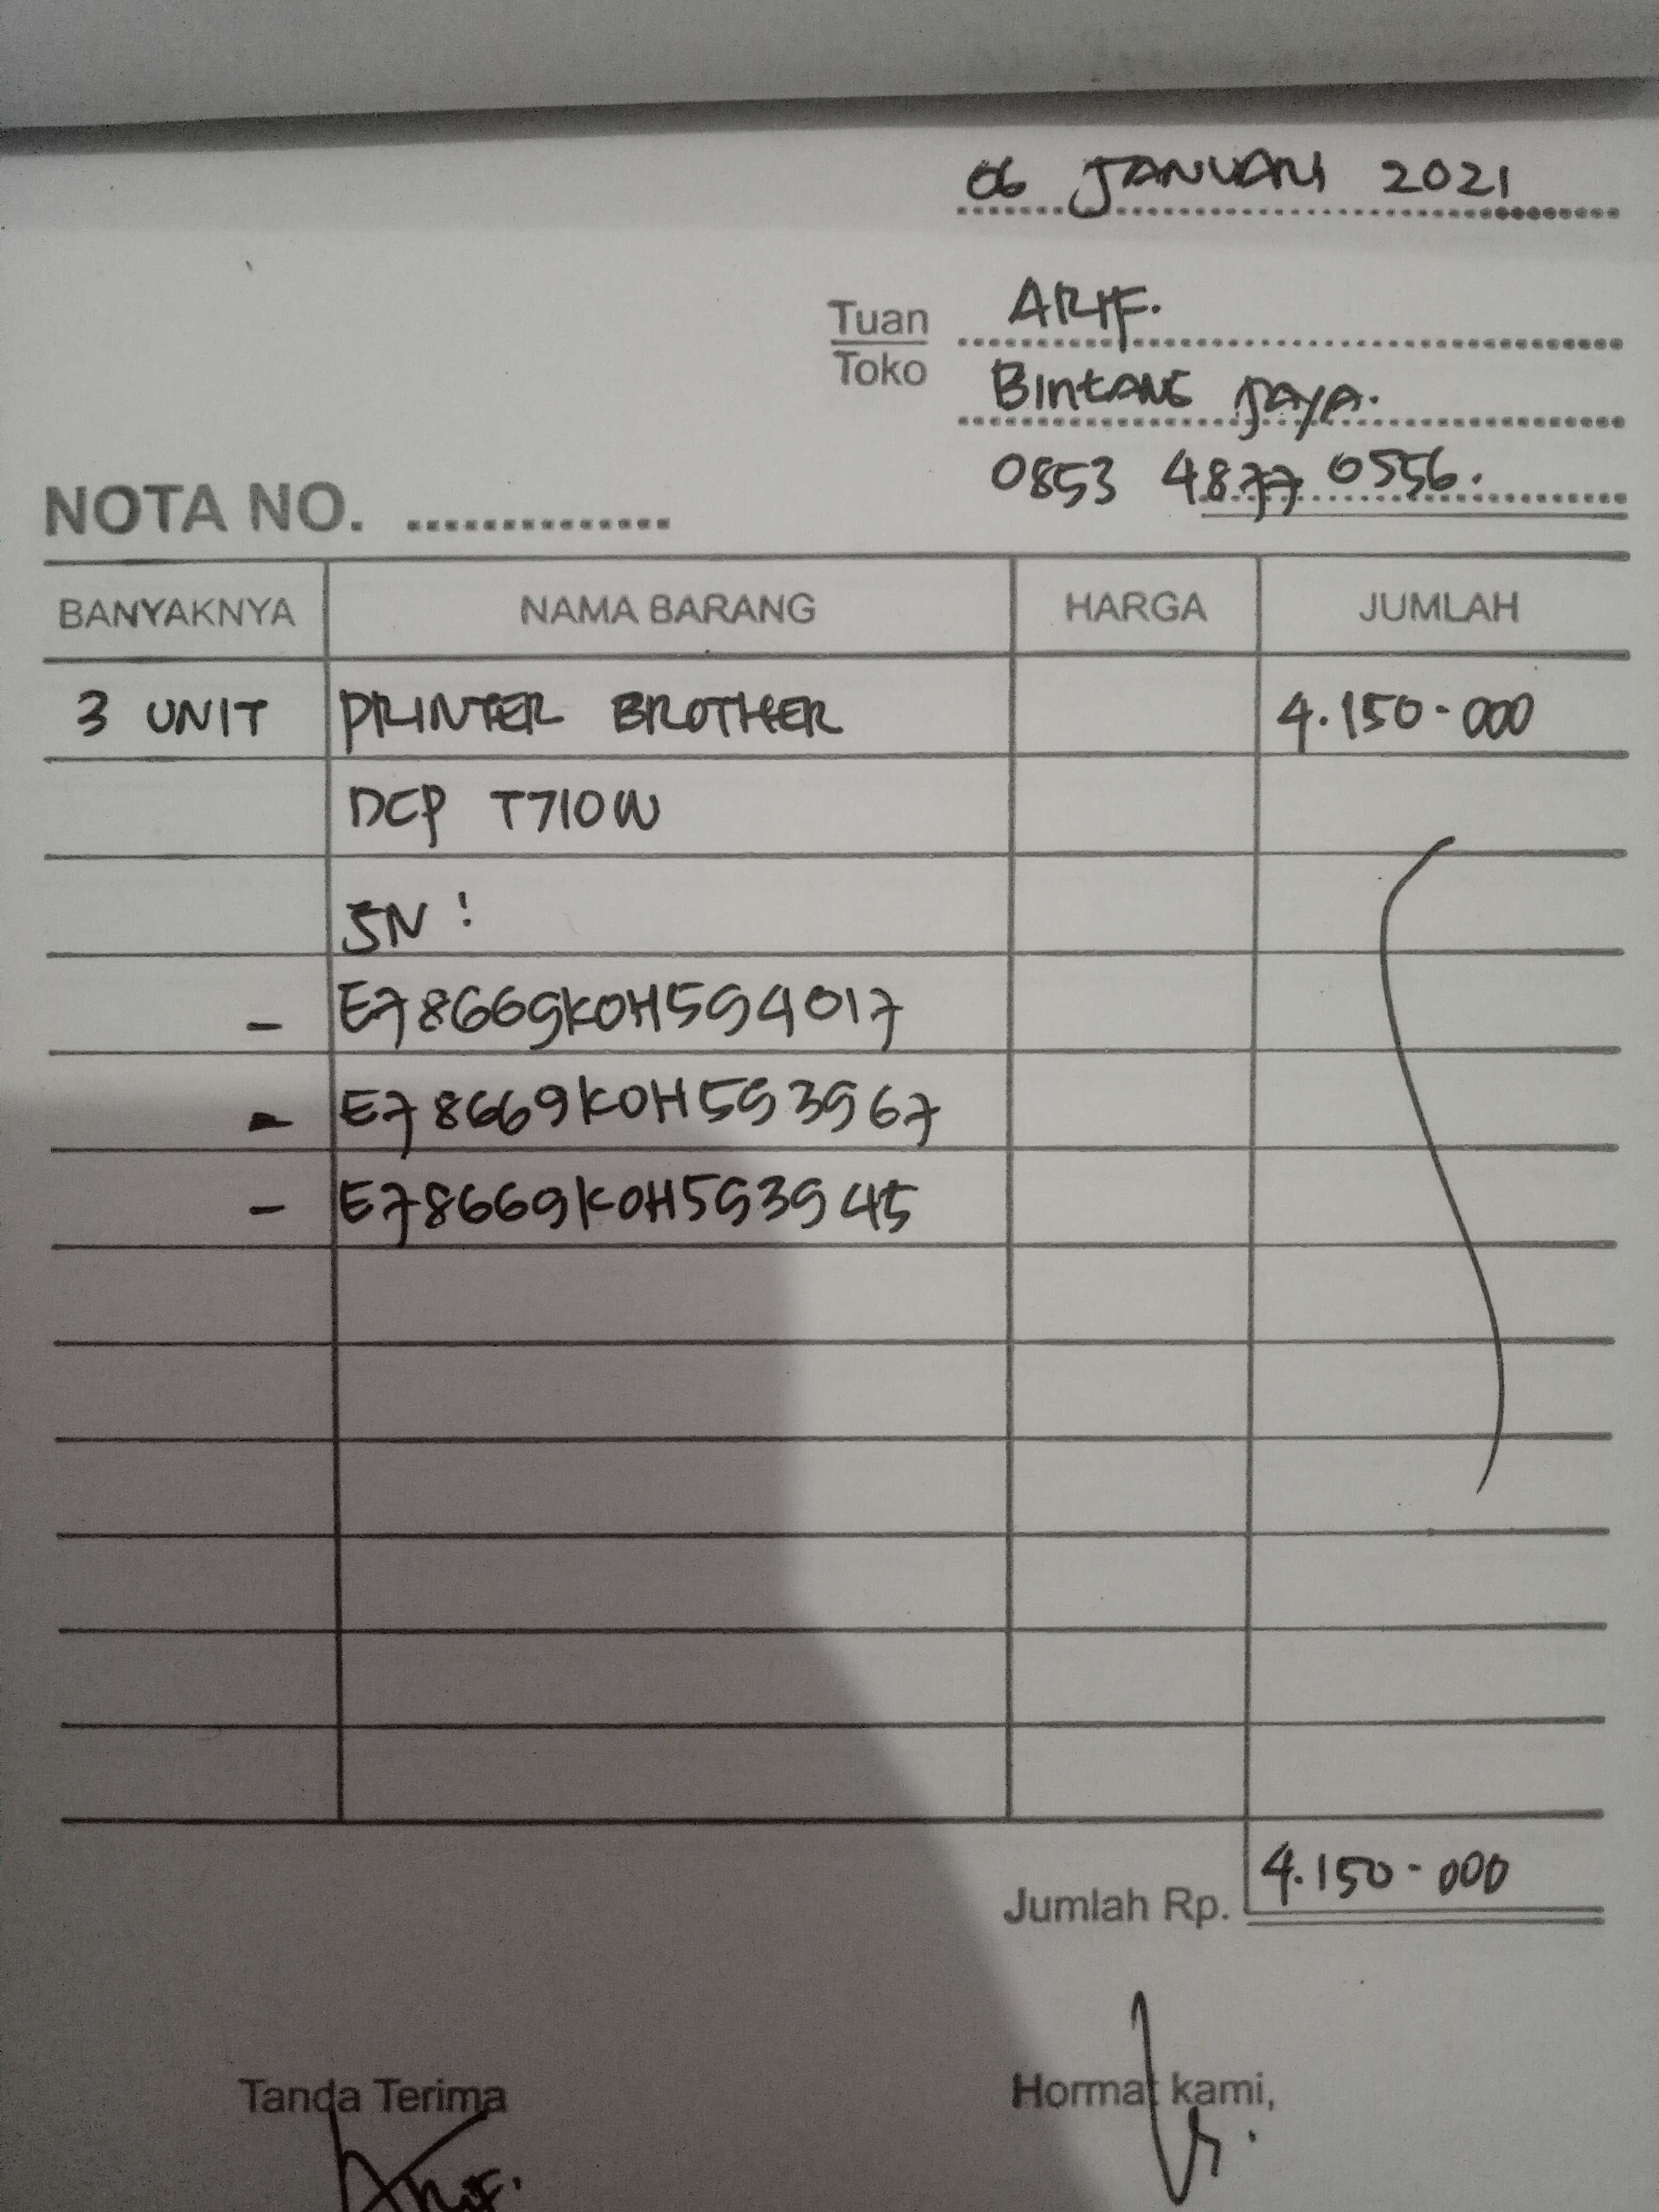 06 JANUARI 2021
Tuan ARIF.
Toko Bintang Jaya.
0853 4877 0556.
NOTA NO. ..............
BANYAKNYA NAMA BARANG HARGA JUMLAH
3 UNIT PRINTER BROTHER 4.150.000
DCP T710W
SN :
- E78669K0H594017
- E78669K0H593967
- E78669K0H593945
Jumlah Rp. 4.150.000
Tanda Terima Hormat kami,
Arif.